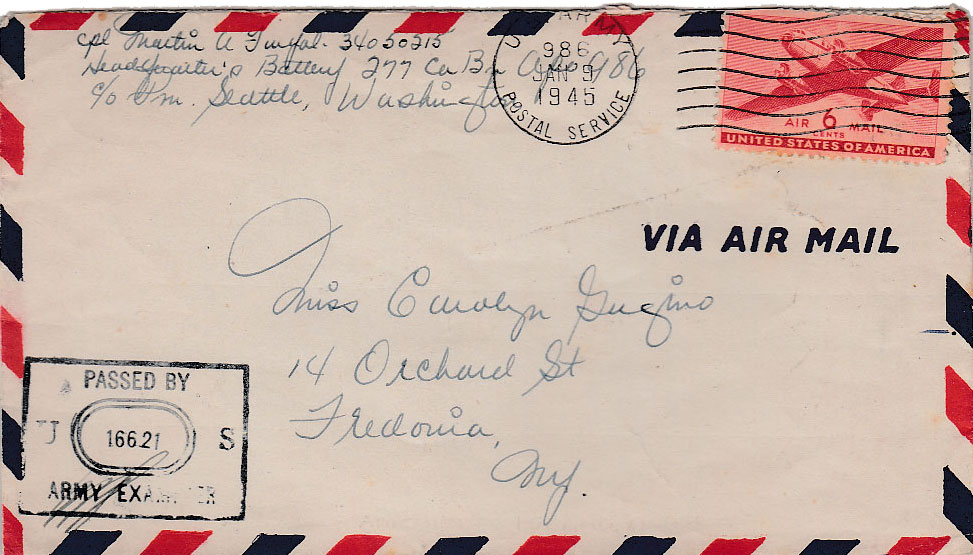 Cpl Martin A 34050215
Headquarter's Battery 277 Ca Bn Apo 986
c/o Pm. Seattle, Washington
U.S. ARMY
986
JAN 9
1945
POSTAL SERVICE
AIR 6 MAIL
CENTS
UNITED STATES OF AMERICA
VIA AIR MAIL
Miss Carolyn Gugino
14 Orchard St
Fredonia,
Ny.
PASSED BY
U 16621 S
ARMY EXAMINER